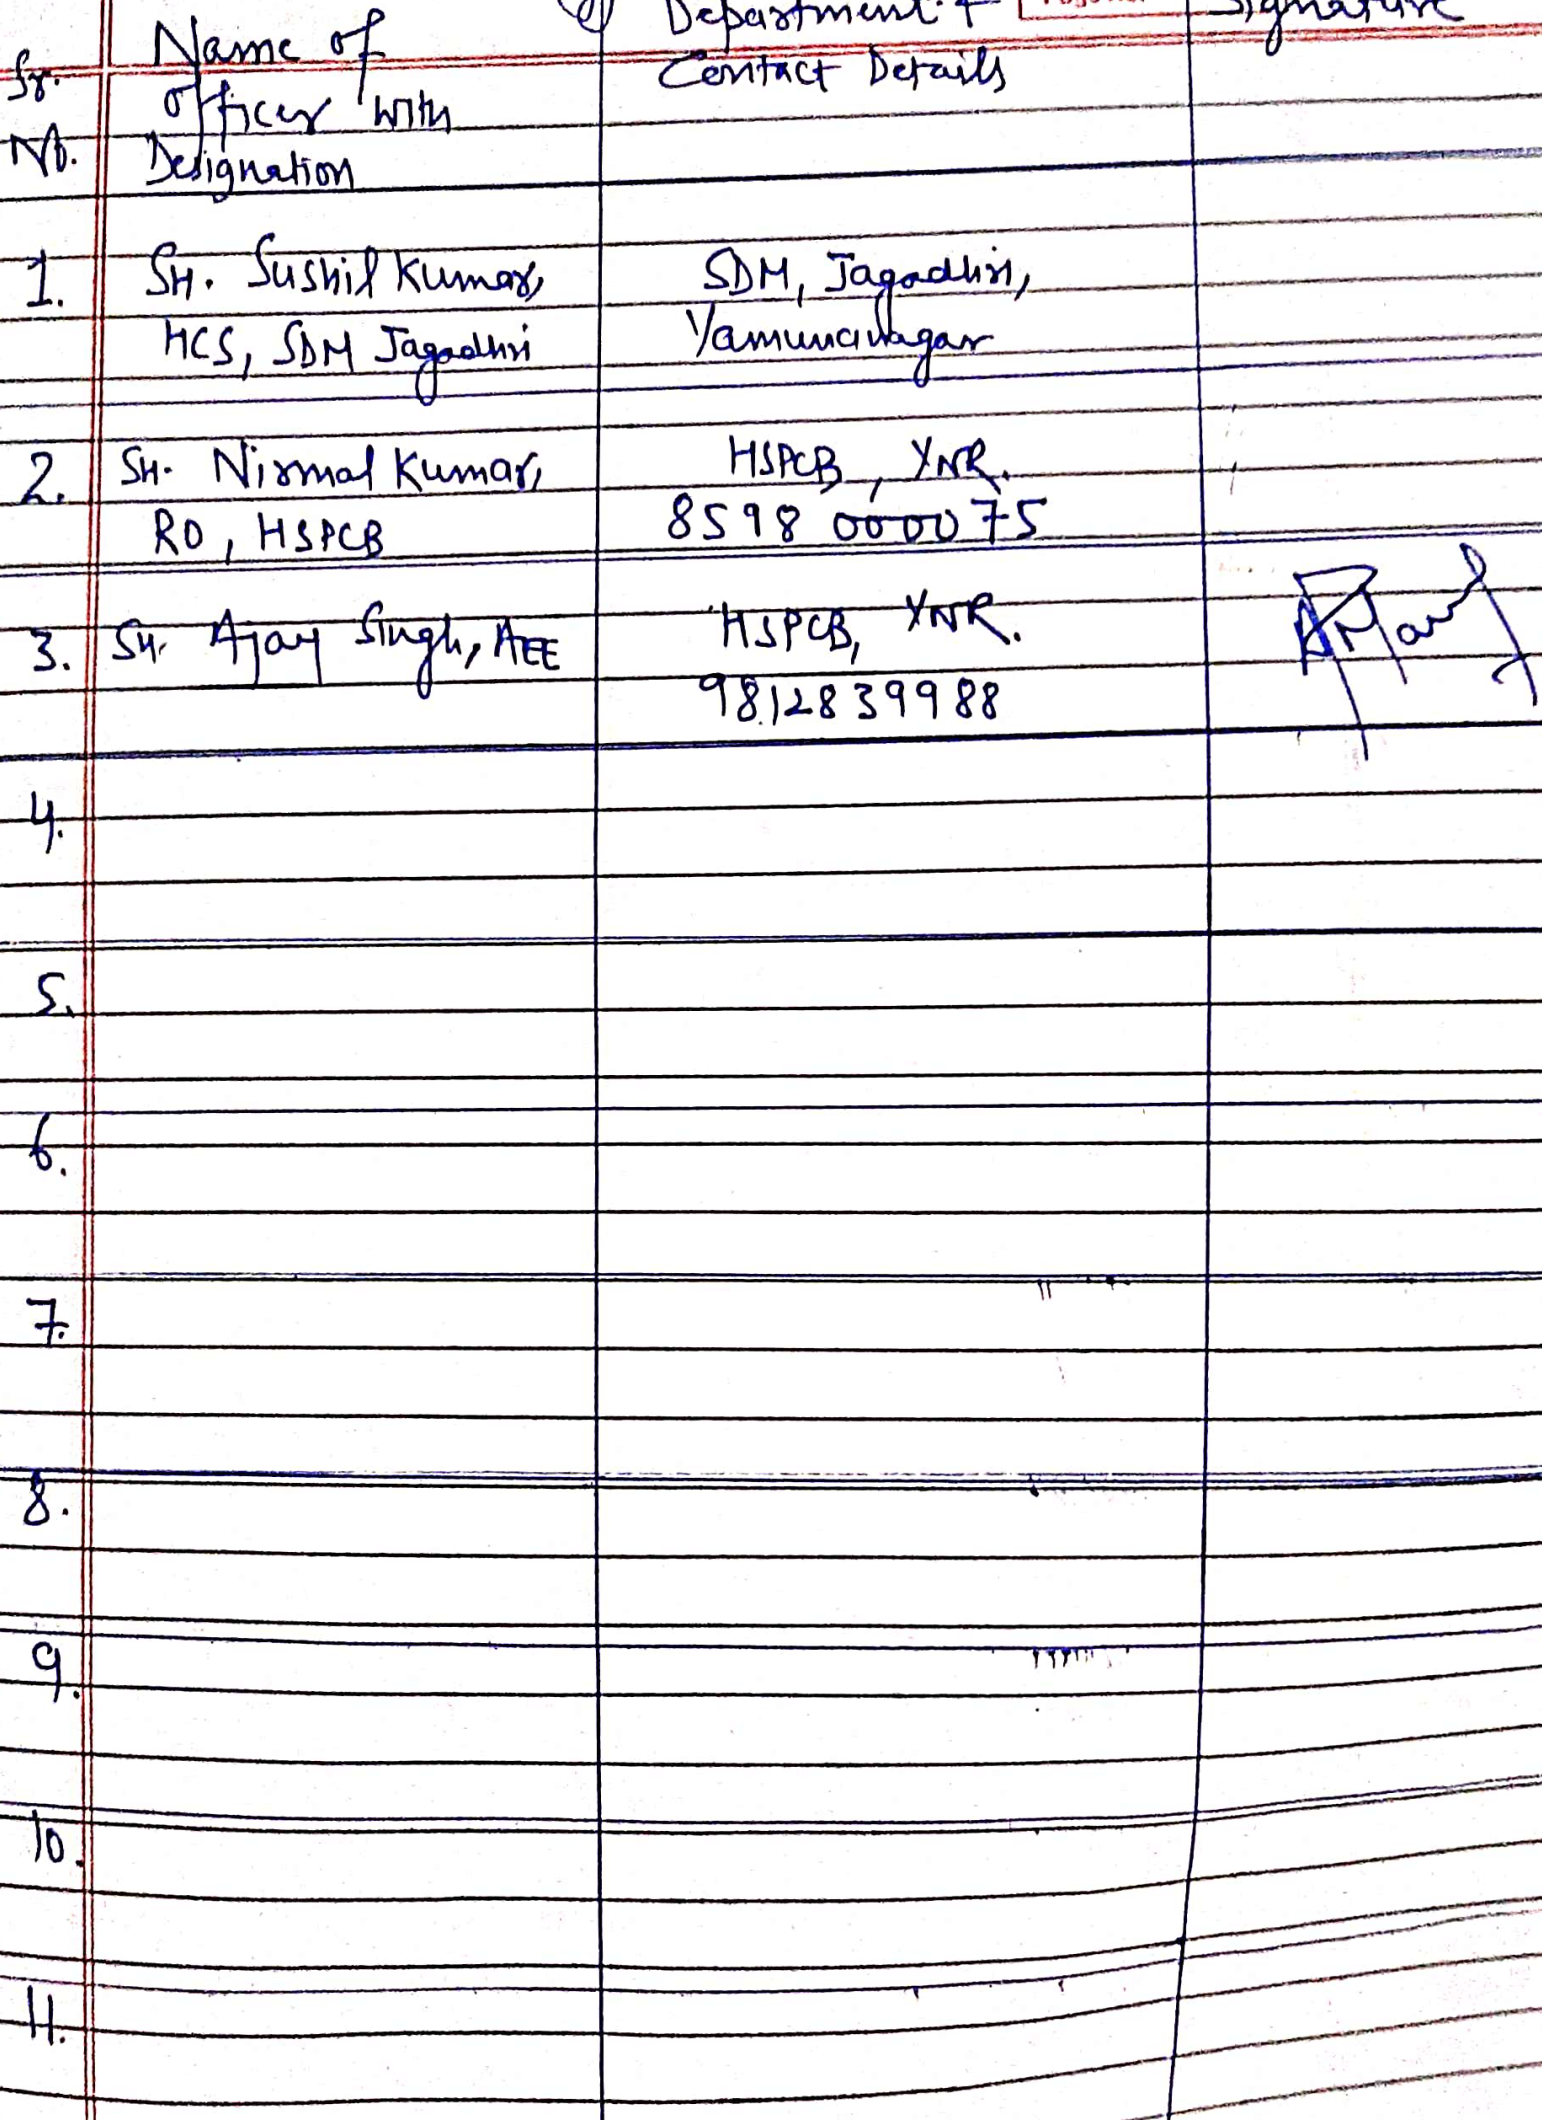 Sr. No.
Name of
Officer with
Designation
Department &
Contact Details
Signature
1.
Sh. Sushil Kumar,
HCS, SDM Jagadhri
SDM, Jagadhri,
Yamunanagar
2.
Sh. Nirmal Kumar,
RO, HSPCB
HSPCB, YNR.
8598000075
3.
Sh. Ajay Singh, AEE
HSPCB, YNR.
9812839988
4.
5.
6.
7.
8.
9.
10.
11.